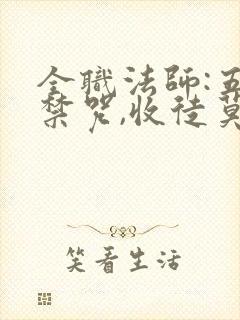 全職法師:五
禁咒,收徒莫
笑看生活